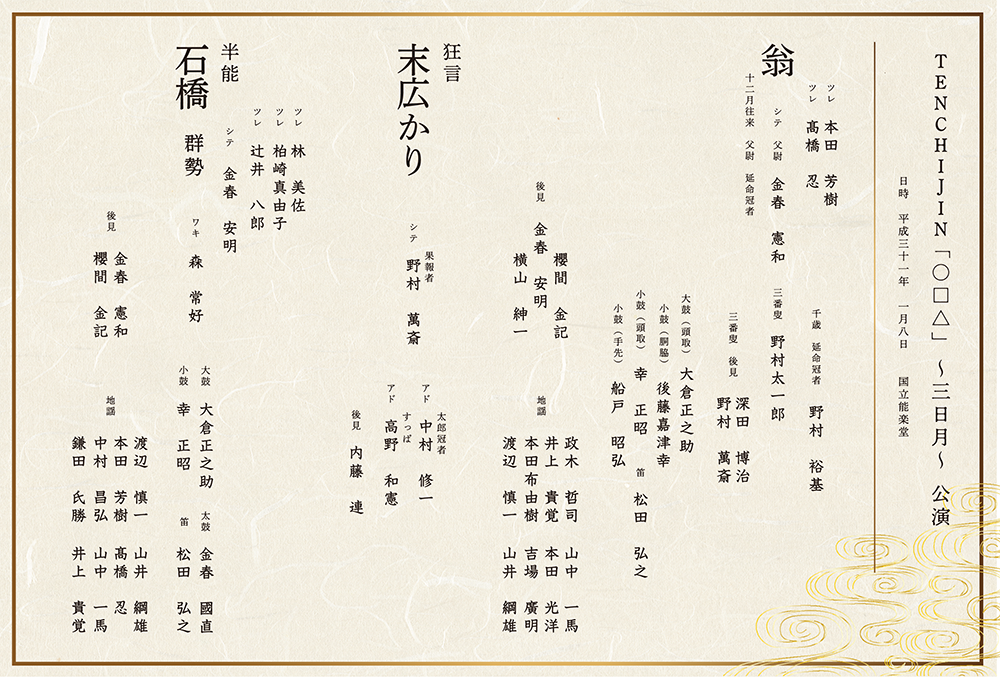 TENCHIJIN「〇□△」 ～三日月～ 公演
日時 平成三十一年 一月八日 国立能楽堂
翁
ツレ 本田 芳樹
ツレ 髙橋 忍
シテ 父尉 金春 憲和
十二月往来 父尉 延命冠者
千歳 延命冠者 野村 裕基
三番叟 野村太一郎
三番叟 後見 深田 博治
野村 萬斎
大鼓（頭取） 大倉正之助
小鼓（胴脇） 後藤嘉津幸
小鼓（頭取） 幸 正昭 笛 松田 弘之
小鼓（手先） 船戸 昭弘
後見
櫻間 金記
金春 安明
横山 紳一
地謡
政木 哲司 山中 一馬
井上 貴覚 本田 光洋
本田布由樹 吉場 廣明
渡辺 慎一 山井 綱雄
狂言
末広かり
シテ 果報者 野村 萬斎
アド 太郎冠者 中村 修一
アド すっぱ 高野 和憲
後見 内藤 連
半能
石橋 群勢
ツレ 林 美佐
ツレ 柏崎真由子
ツレ 辻井 八郎
シテ 金春 安明
ワキ 森 常好
大鼓 大倉正之助 太鼓 金春 國直
小鼓 幸 正昭 笛 松田 弘之
後見
金春 憲和
櫻間 金記
地謡
渡辺 慎一 山井 綱雄
本田 芳樹 髙橋 忍
中村 昌弘 山中 一馬
鎌田 氏勝 井上 貴覚